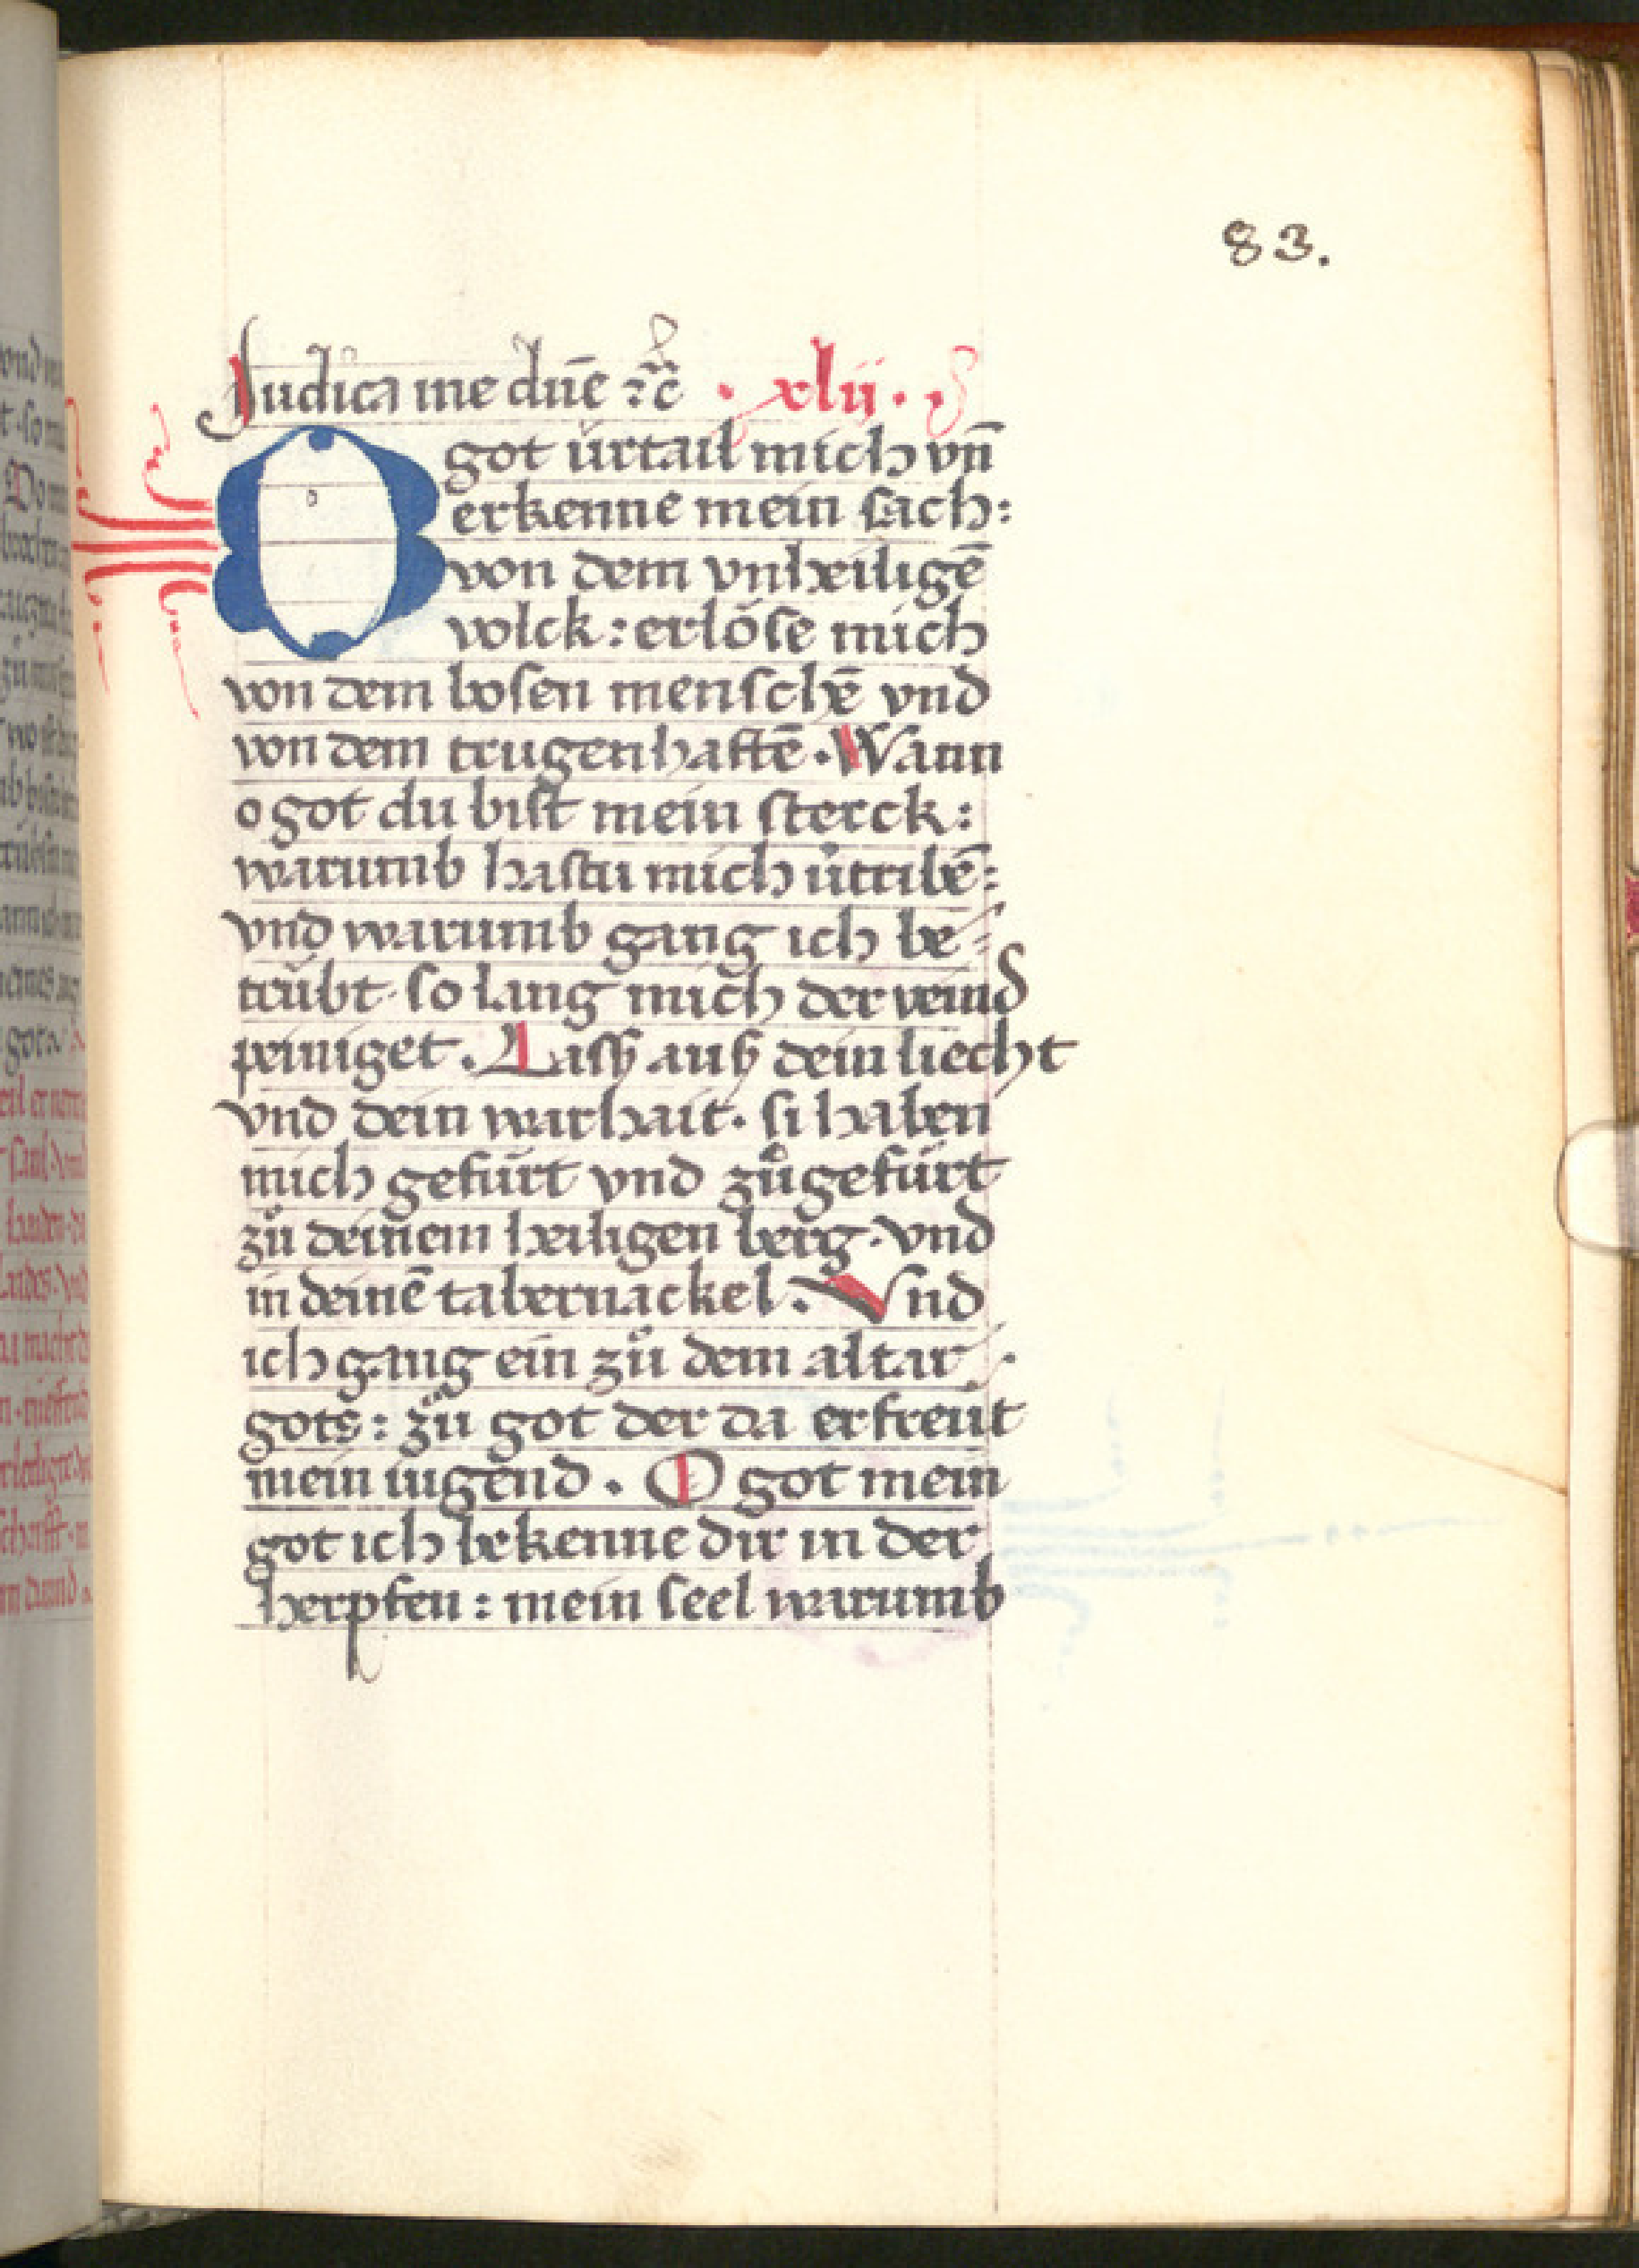 83.
Iudica me dn̄e ⁊c̄ · xlij ·
O got ürtail mich vn̄
erkenne mein sach:
von dem vnheiligē
volck: erlöse mich
von dem bosen menschē vnd
von dem trugenhaftē. Wann
o got du bist mein sterck:
warumb hastu mich v̊tribē:
vnd warumb gang ich be-
trübt· so lang mich der veind
peiniget. Lassz ausz dein liecht
vnd dein warhait. si haben
mich gefürt vnd zůgefürt
zů deinem heiligen berg. vnd
in deinē tabernackel. Vnd
ich gang ein zů dem altar.
gots: zů got der da erfreüt
mein iugend. O got mein
got ich bekenne dir in der
herpfen: mein seel warumb